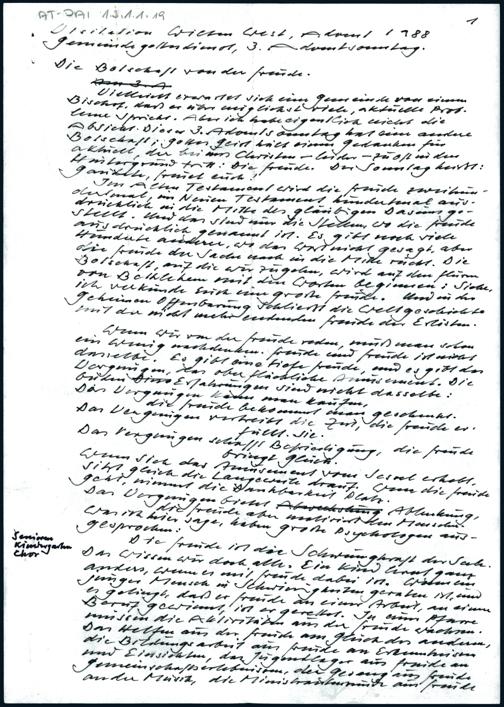 AT-DAI 13.1.1.19
1
Visitation Wilten West, Advent 1988
Gemeindegottesdienst, 3. Adventsonntag.
Die Botschaft von der Freude.
Vielleicht erwartet sich eine Gemeinde von einem
Bischof, daß er über möglichst viele, aktuelle Prob-
leme spricht. Aber ich habe eigentlich nicht die
Absicht. Dieser 3. Adventsonntag hat eine andere
Botschaft; Gott greift einen Gedanken
aktuell, der bei uns Christen - leider - zu oft in den
Hintergrund tritt. Die Freude. Der Sonntag heißt:
Gaudete, freut euch!
Im Alten Testament wird die Freude
mal, im Neuen Testament hundertmal aus-
drücklich in die Mitte des gläubigen Daseins ge-
stellt. Und das sind nur die Stellen, wo die Freude
ausdrücklich genannt ist. Es gibt noch viele
hunderte andere, wo das Wort nicht gesagt, aber
die Freude der Sache nach in die Mitte rückt. Die
Botschaft, auf die wir zugehen, wird auf den Fluren
von Betlehem mit den Worten beginnen: Siehe,
ich verkünde euch eine große Freude. Und in der
geheimen Offenbarung schließt die Weltgeschichte
mit der nicht mehr endenden Freude der Erlösten.
Wenn wir von der Freude reden, muß man schon
ein wenig nachdenken. Freude und Freude ist nicht
dasselbe. Es gibt die tiefe Freude, und es gibt das
Vergnügen, das oberflächliche Amusement. Die
beiden Erfahrungen sind nicht dasselbe:
Das Vergnügen kann man kaufen,
die Freude bekommt man geschenkt.
Das Vergnügen vertreibt die Zeit, die Freude er-
füllt sie.
Das Vergnügen schafft Befriedigung, die Freude
bringt Glück.
Wenn sich das Amusement vom Sessel erhebt,
sitzt gleich die Langeweile drauf. Wenn die Freude
geht, nimmt die Dankbarkeit Platz.
Das Vergnügen bietet Ablenkung,
die Freude aber den Menschen.
Was ich hier sage, haben große Psychologen aus-
gesprochen.
Senioren
Kindergarten
Chor
Die Freude ist die Schwungkraft der Seele.
Das wissen wir doch alle. Ein Kind lernt ganz
anders, wenn es mit Freude dabei ist. Wenn ein
junger Mensch in Schwierigkeiten geraten ist, und
es gelingt, daß er Freude an einer Arbeit, an einem
Beruf gewinnt, ist er gerettet. In einer Pfarre
müssen die Aktivitäten aus der Freude wachsen.
Das Helfen aus der Freude am Glück des anderen,
die Bildungsarbeit aus Freude an Erkenntnissen
und Einsichten, das Jugendlager aus Freude an
Gemeinschaftserlebnissen, der Gesang aus Freude
an der Musik, die Ministrantenrunde aus Freude